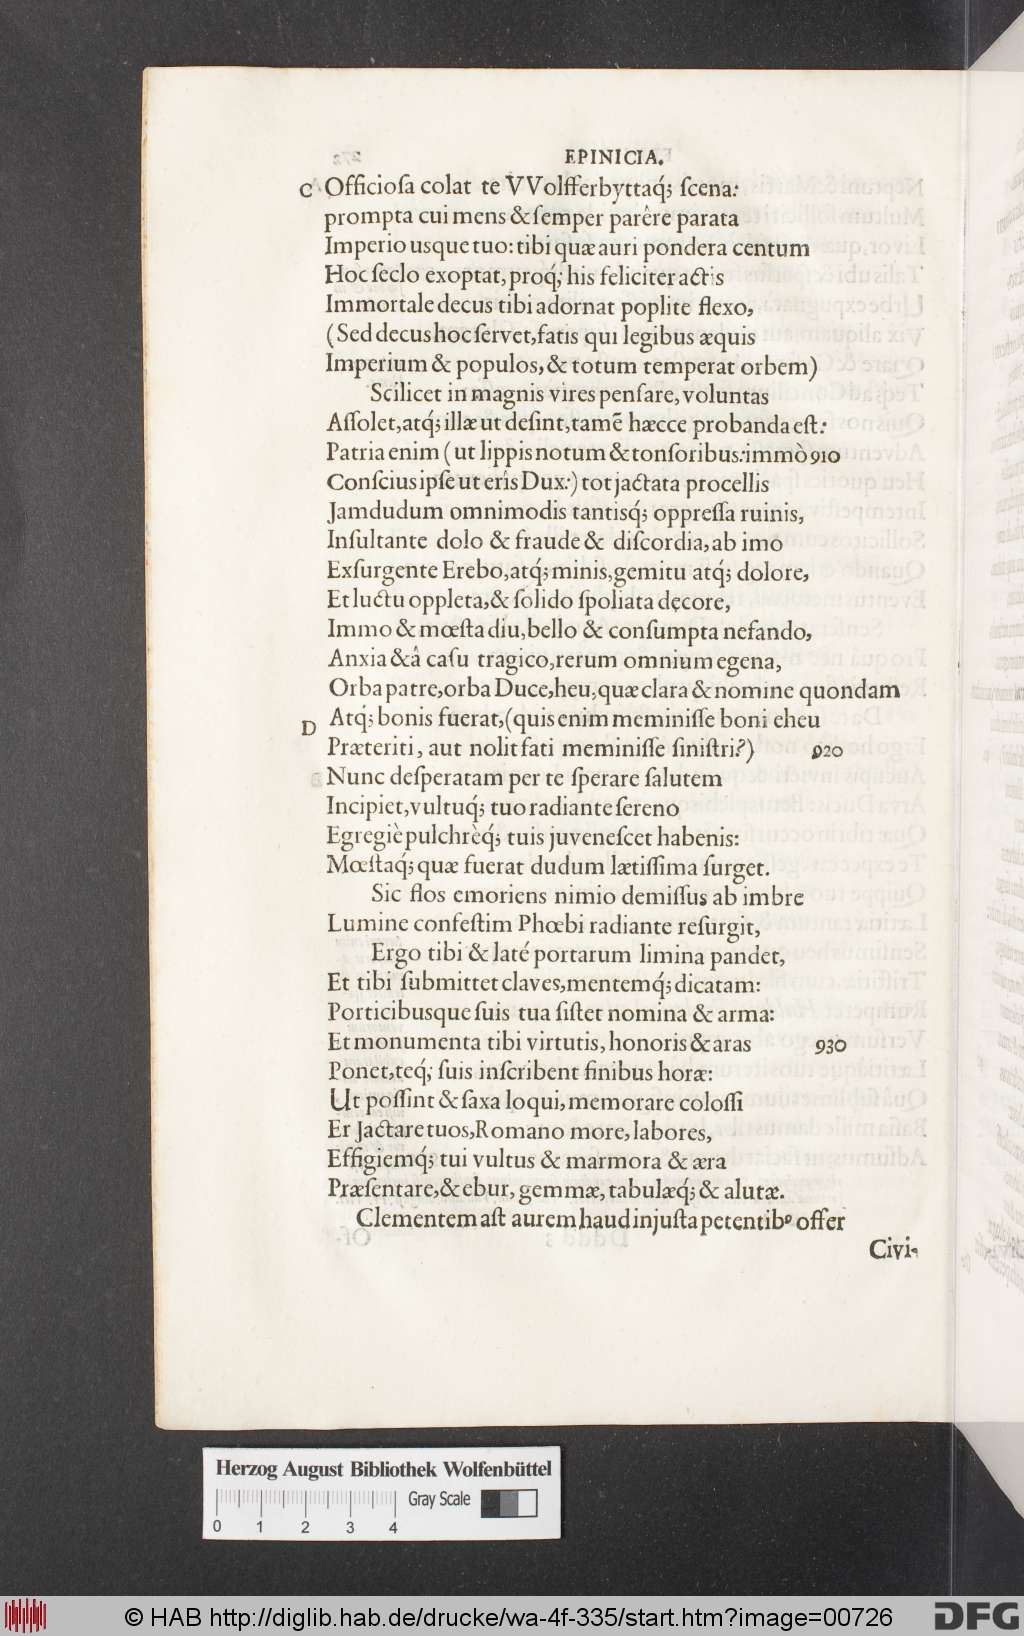 EPINICIA.
C Officioſa colat te VVolfferbyttaq́; ſcena:
prompta cui mens & ſemper parêre parata
Imperio usque tuo: tibi quæ auri pondera centum
Hoc ſeclo exoptat, proq́; his feliciter actis
Immortale decus tibi adornat poplite flexo,
(Sed decus hoc ſervet, fatis qui legibus æquis
Imperium & populos, & totum temperat orbem)
Scilicet in magnis vires penſare, voluntas
Aſſolet, atq́; illæ ut deſint, tamẽ hæcce probanda eſt:
Patria enim ( ut lippis notum & tonſoribus: immò 910
Conſcius ipſe ut eris Dux:) tot jactata procellis
Jamdudum omnimodis tantisq́; oppreſſa ruinis,
Inſultante dolo & fraude & diſcordia, ab imo
Exſurgente Erebo, atq́; minis, gemitu atq́; dolore,
Et luctu oppleta, & ſolido ſpoliata decore,
Immo & mœſta diu, bello & conſumpta nefando,
Anxia & â caſu tragico, rerum omnium egena,
Orba patre, orba Duce, heu, quæ clara & nomine quondam
D Atq́; bonis fuerat, (quis enim meminiſſe boni eheu
Præteriti, aut nolit fati meminiſſe ſiniſtri?) 920
Nunc deſperatam per te ſperare ſalutem
Incipiet, vultuq́; tuo radiante ſereno
Egregiè pulchrèq́; tuis juveneſcet habenis:
Mœſtaq́; quæ fuerat dudum lætiſſima ſurget.
Sic flos emoriens nimio demiſſus ab imbre
Lumine confeſtim Phœbi radiante reſurgit,
Ergo tibi & laté portarum limina pandet,
Et tibi ſubmittet claves, mentemq́; dicatam:
Porticibusque ſuis tua ſiſtet nomina & arma:
Et monumenta tibi virtutis, honoris & aras 930
Ponet, teq́; ſuis inſcribent finibus horæ:
Ut poſſint & ſaxa loqui, memorare coloſſi
Er Jactare tuos, Romano more, labores,
Effigiemq́; tui vultus & marmora & æra
Præſentare, & ebur, gemmæ, tabulæq́; & alutæ.
Clementem aſt aurem haud injuſta petentibꝰ offer
Civi-
Herzog August Bibliothek Wolfenbüttel
Gray Scale
0 1 2 3 4
© HAB http://diglib.hab.de/drucke/wa-4f-335/start.htm?image=00726
DFG